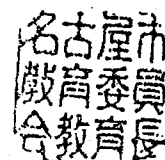 名古屋市
教育委員
会教育長